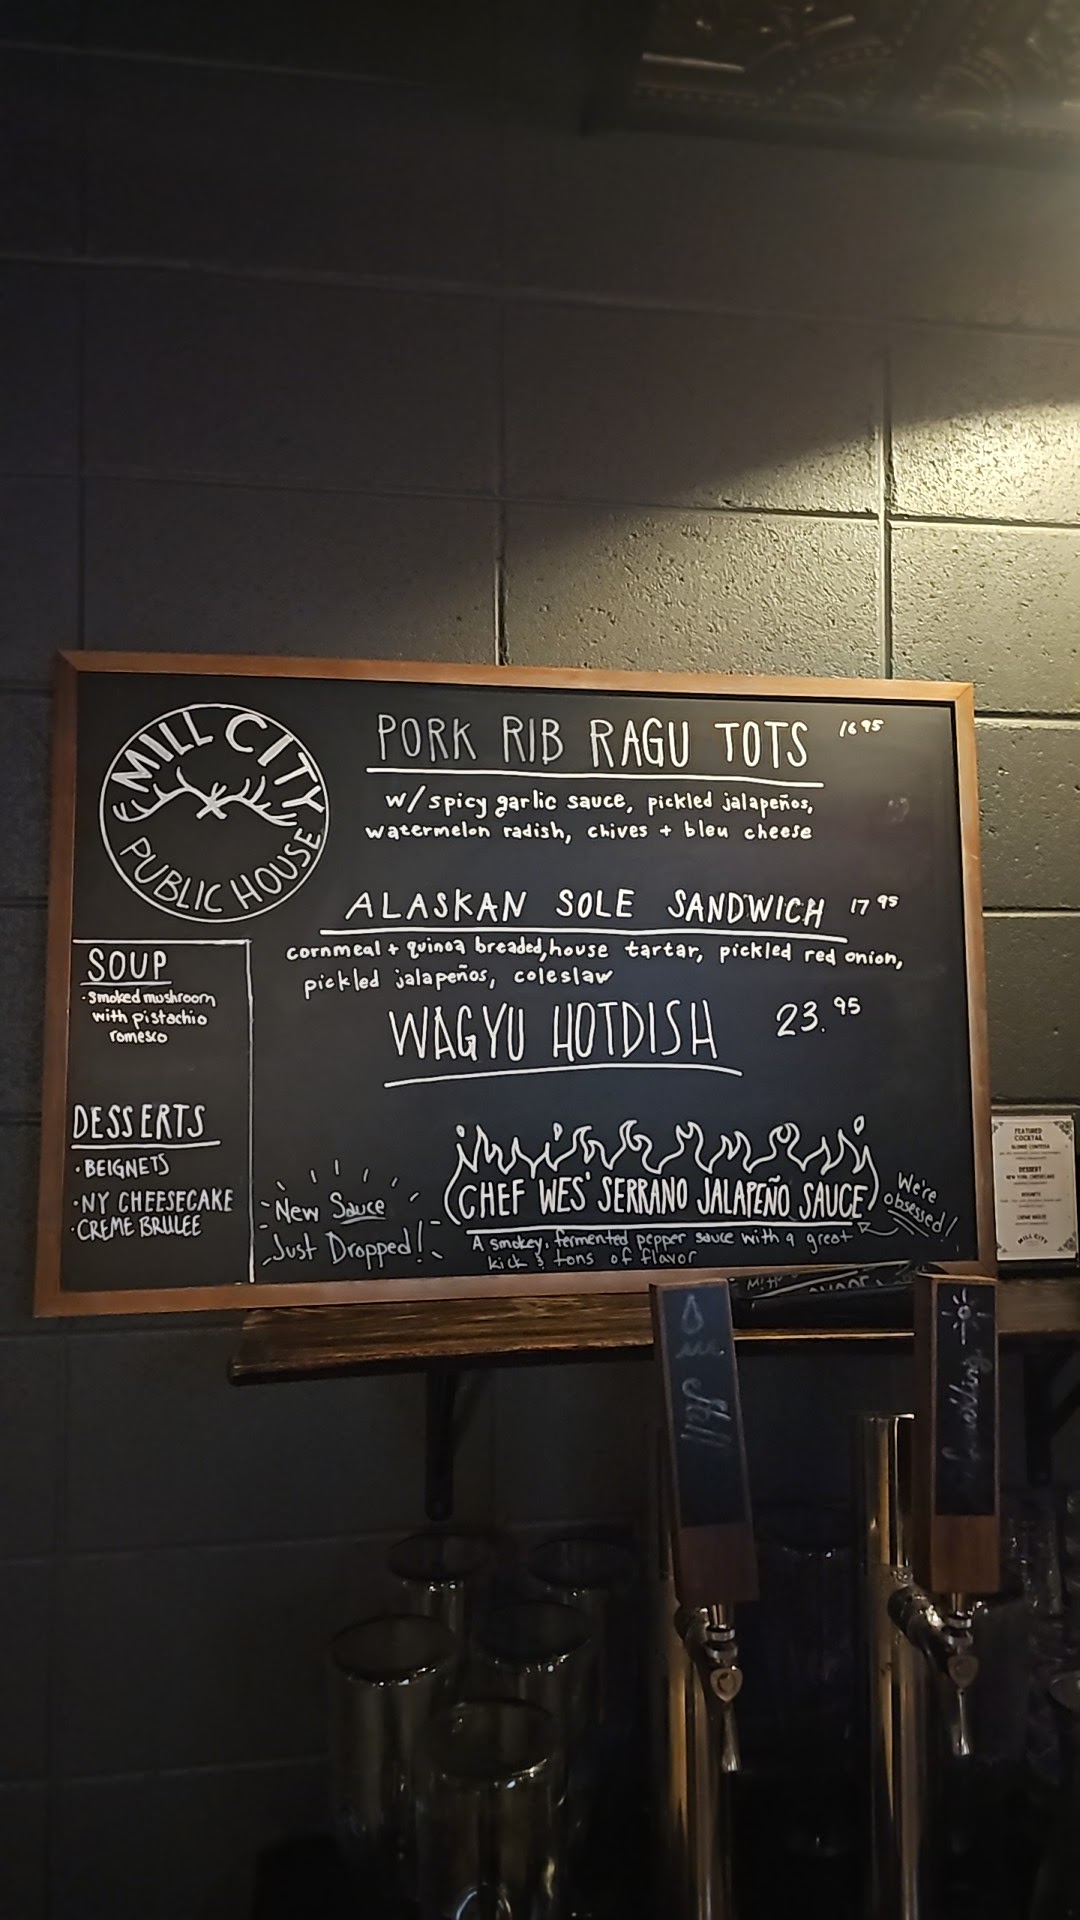 MILL CITY
PUBLIC HOUSE
PORK RIB RAGU TOTS 16 95
w/ spicy garlic sauce, pickled jalapeños,
watermelon radish, chives + bleu cheese
ALASKAN SOLE SANDWICH 17 95
cornmeal + quinoa breaded, house tartar, pickled red onion,
pickled jalapeños, coleslaw
WAGYU HOTDISH 23.95
SOUP
·smoked mushroom
with pistachio
romesco
DESSERTS
·BEIGNETS
·NY CHEESECAKE
·CREME BRULEE
New Sauce
Just Dropped!
CHEF WES' SERRANO JALAPEÑO SAUCE
We're
obsessed!
A smokey, fermented pepper sauce with a great
kick & tons of flavor
FEATURED
COCKTAIL
DESSERT
NEW YORK CHEESECAKE
BEIGNETS
CREME BRULEE
MILL CITY
Still
Sparkling